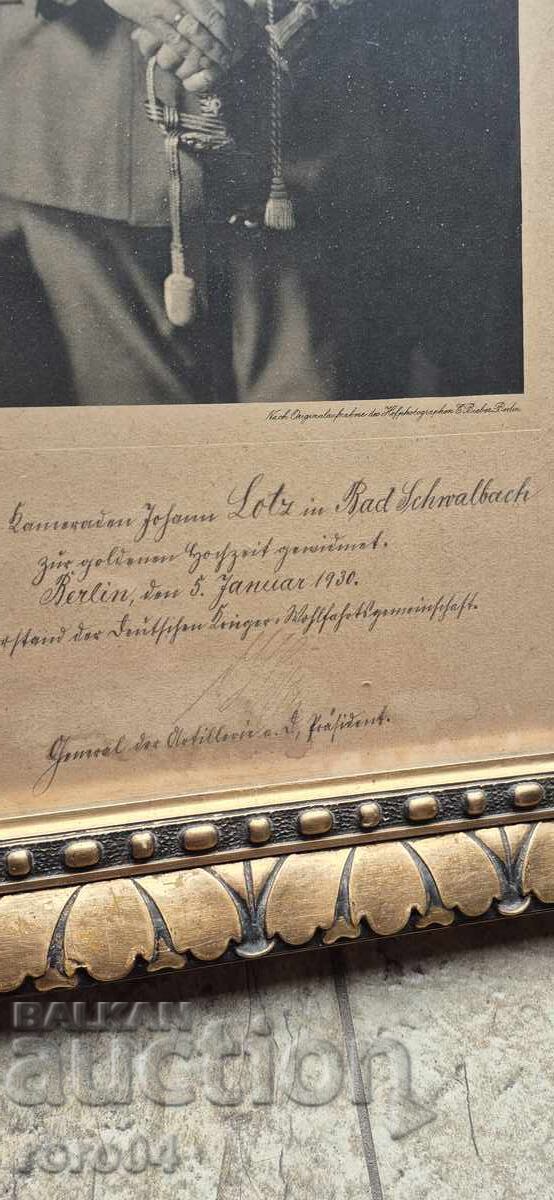 Nach Originalaufnahme des Hofphotographen E. Bieber, Berlin
Kameraden Johann Lotz in Bad Schwalbach
zur goldenen Hochzeit gewidmet.
Berlin, den 5. Januar 1930.
rstand der Deutschen Krieger-Wohlfahrtsgemeinschaft.
General der Artillerie a. D., Präsident.
BALKAN
auction
roro04